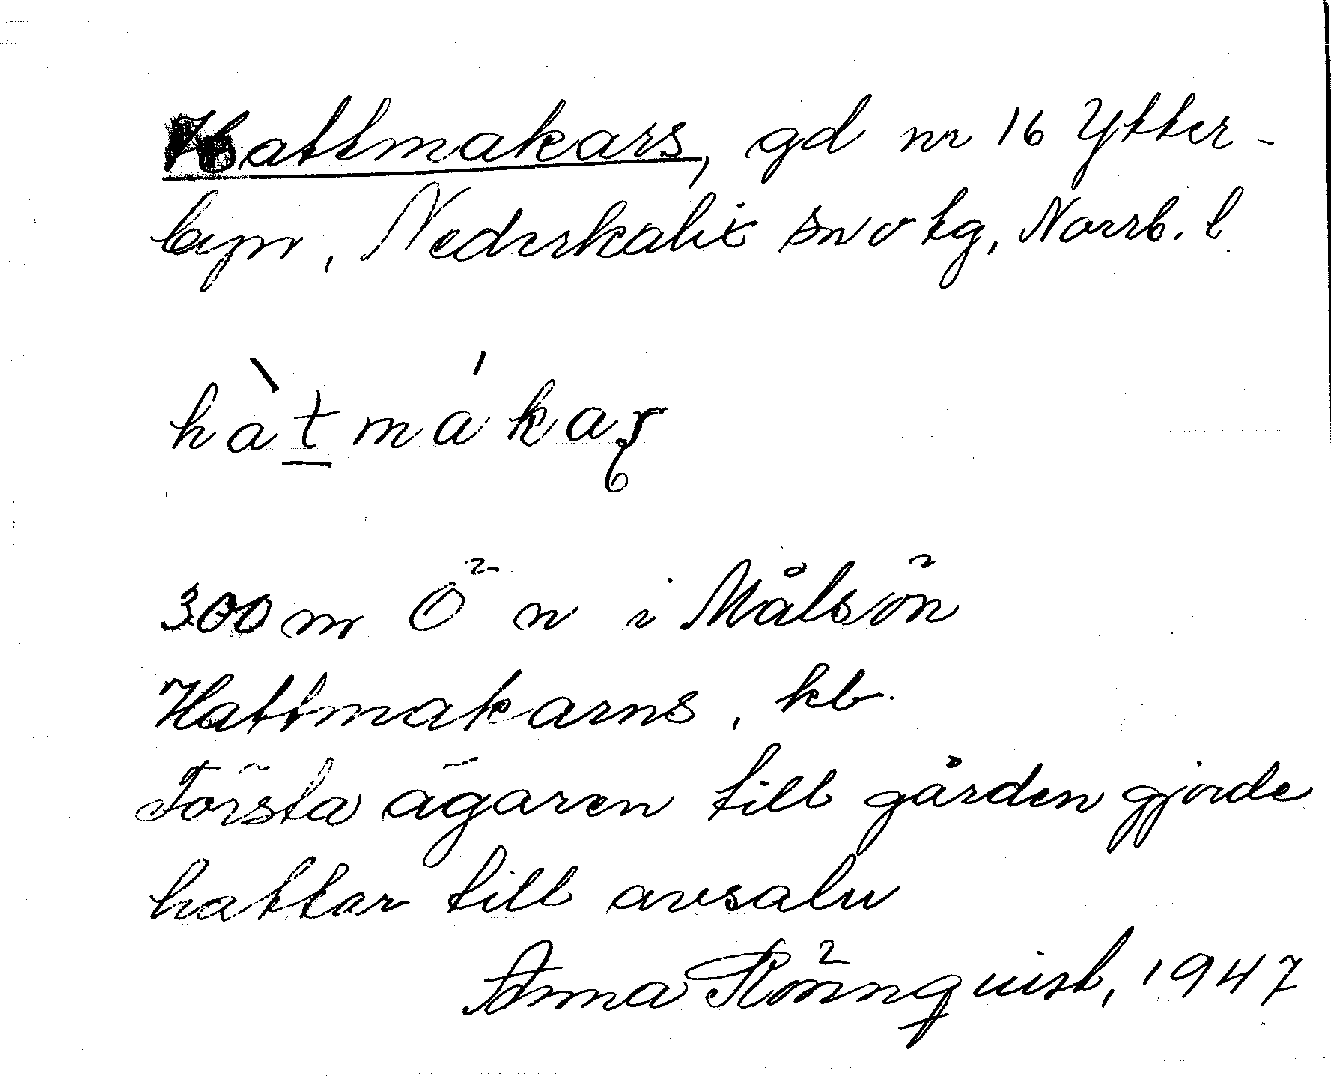 Hattmakars, gd nr 16 Ytter-
byn, Nederkalix sn o tg, Norrb. l.
hàtmákaʂ
300 m Ö n i Målsön
Hattmakarns, kb.
Första ägaren till gården gjorde
hattar till avsalu
Anna Rönnquist, 1947